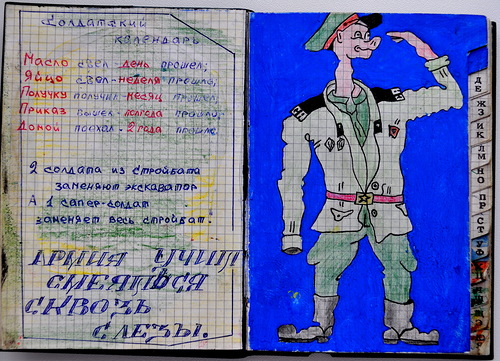 Солдатский
календарь
Масло съел - день прошел;
Яйцо съел - неделя прошла;
Получку получил - месяц прошел;
Приказ вышел - полгода прошло;
Домой поехал - 2 года прошло.
2 солдата из стройбата
заменяют экскаватор
А 1 сапер-солдат
заменяет весь стройбат.
АРМИЯ УЧИТ
СМЕЯТЬСЯ
СКВОЗЬ
СЛЕЗЫ.
ДЕ
Ж
З
ИК
ЛМ
НО
ПР
СТ
УФ